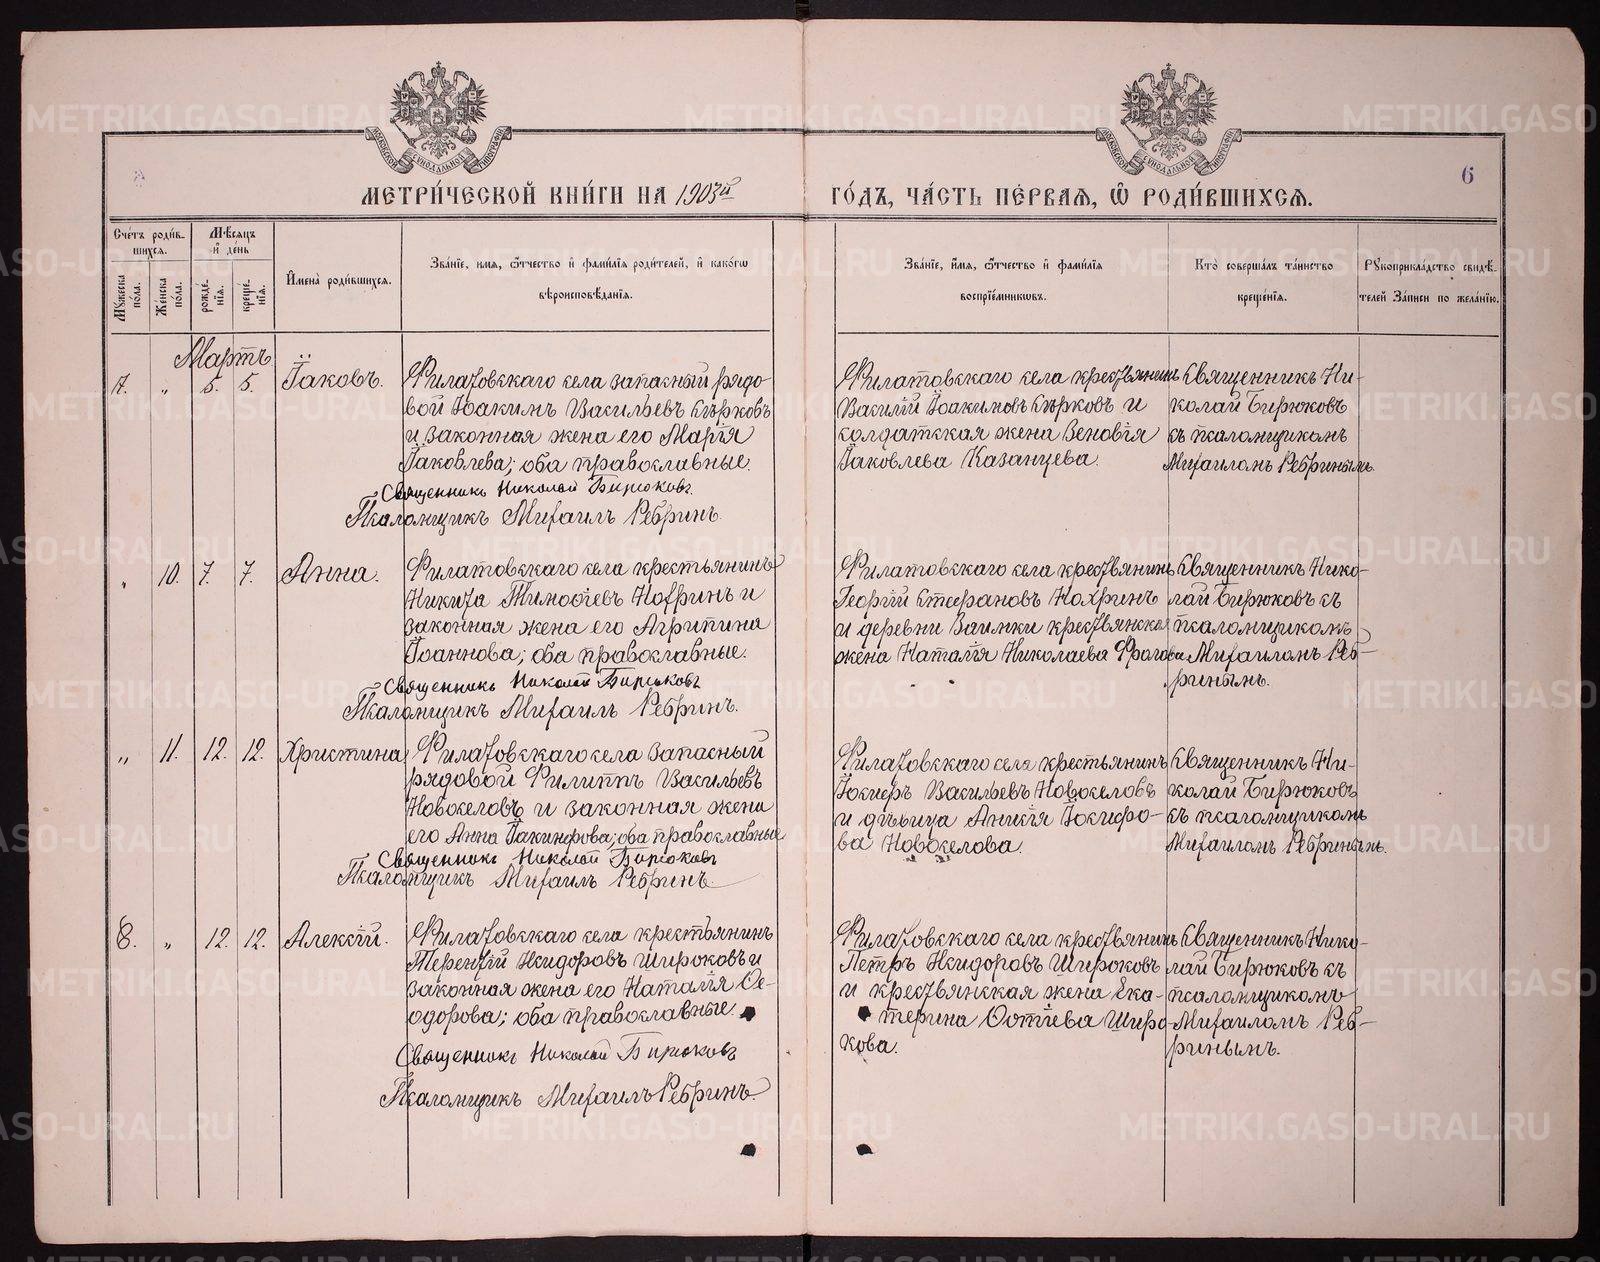 МЕТРИ́ЧЕСКОЙ КНИ́ГИ НА 1903й ГО́ДЪ, ЧА́СТЬ ПЕ́РВАЯ, Ѿ РОДИ́ВШИХСЯ.
6
Сче́тъ роди́в-
шихся.
Мѣ́сяцъ
и҆ де́нь
Му́жеска
по́ла.
Же́нска
по́ла.
рожде́-
нїя.
креще́-
нїя.
И҆мена̀ роди́вшихся.
Зва́нїе, имя, ѻ҆́тчество и҆ фами́лїя роди́телей, и҆ како́гѡ
вѣроисповѣ́данїя.
Зва́нїе, и҆́мя, ѻ҆́тчество и҆ фами́лїя
воспрїе́мникѡвъ.
Кто̀ соверша́лъ та́инство
креще́нїя.
Рꙋкоприкла́дство свидѣ́-
телей За́писи по жела́нїю.
Мартъ
7. „ 5. 5. Іаковъ.
Филатовскаго села запасный рядо-
вой Іоакимъ Васильевъ Сѣрковъ
и законная жена его Марія
Іаковлева; оба православные.
Священникъ Николай Бирюковъ.
Псаломщикъ Михаилъ Ребринъ.
Филатовскаго села крестьянинъ
Василій Іоакимовъ Сѣрковъ и
солдатская жена Зеновія
Іаковлева Казанцева.
Священникъ Ни-
колай Бирюковъ
съ псаломщикомъ
Михаиломъ Ребринымъ.
„ 10. 7. 7. Анна.
Филатовскаго села крестьянинъ
Никита Тимоѳіевъ Кохринъ и
законная жена его Агрипина
Іоаннова; оба православные.
Священникъ Николай Бирюковъ
Псаломщикъ Михаилъ Ребринъ.
Филатовскаго села крестьянинъ
Георгій Стефановъ Кохринъ
и деревни Заимки крестьянская
жена Наталія Николаева Фролова
Священникъ Нико-
лай Бирюковъ съ
псаломщикомъ
Михаиломъ Реб-
ринымъ.
„ 11. 12. 12. Христина
Филатовскаго села запасный
рядовой Филиппъ Васильевъ
Новоселовъ и законная жена
его Анна Іакинфова; оба православные
Священникъ Николай Бирюковъ
Псаломщикъ Михаилъ Ребринъ
Филатовскаго села крестьянинъ
Іосифъ Васильевъ Новоселовъ
и дѣвица Анисія Іосифо-
ва Новоселова.
Священникъ Ни-
колай Бирюковъ
съ псаломщикомъ
Михаиломъ Ребринымъ.
8. „ 12. 12. Алексій.
Филатовскаго села крестьянинъ
Терентій Исидоровъ Широковъ и
законная жена его Наталія Ѳе-
одорова; оба православные.
Священникъ Николай Бирюковъ
Псаломщикъ Михаилъ Ребринъ.
Филатовскаго села крестьянинъ
Петръ Исидоровъ Широковъ
и крестьянская жена Ека-
терина Фотіева Широ-
кова.
Священникъ Нико-
лай Бирюковъ съ
псаломщикомъ
Михаиломъ Реб-
ринымъ.
METRIKI.GASO-URAL.RU